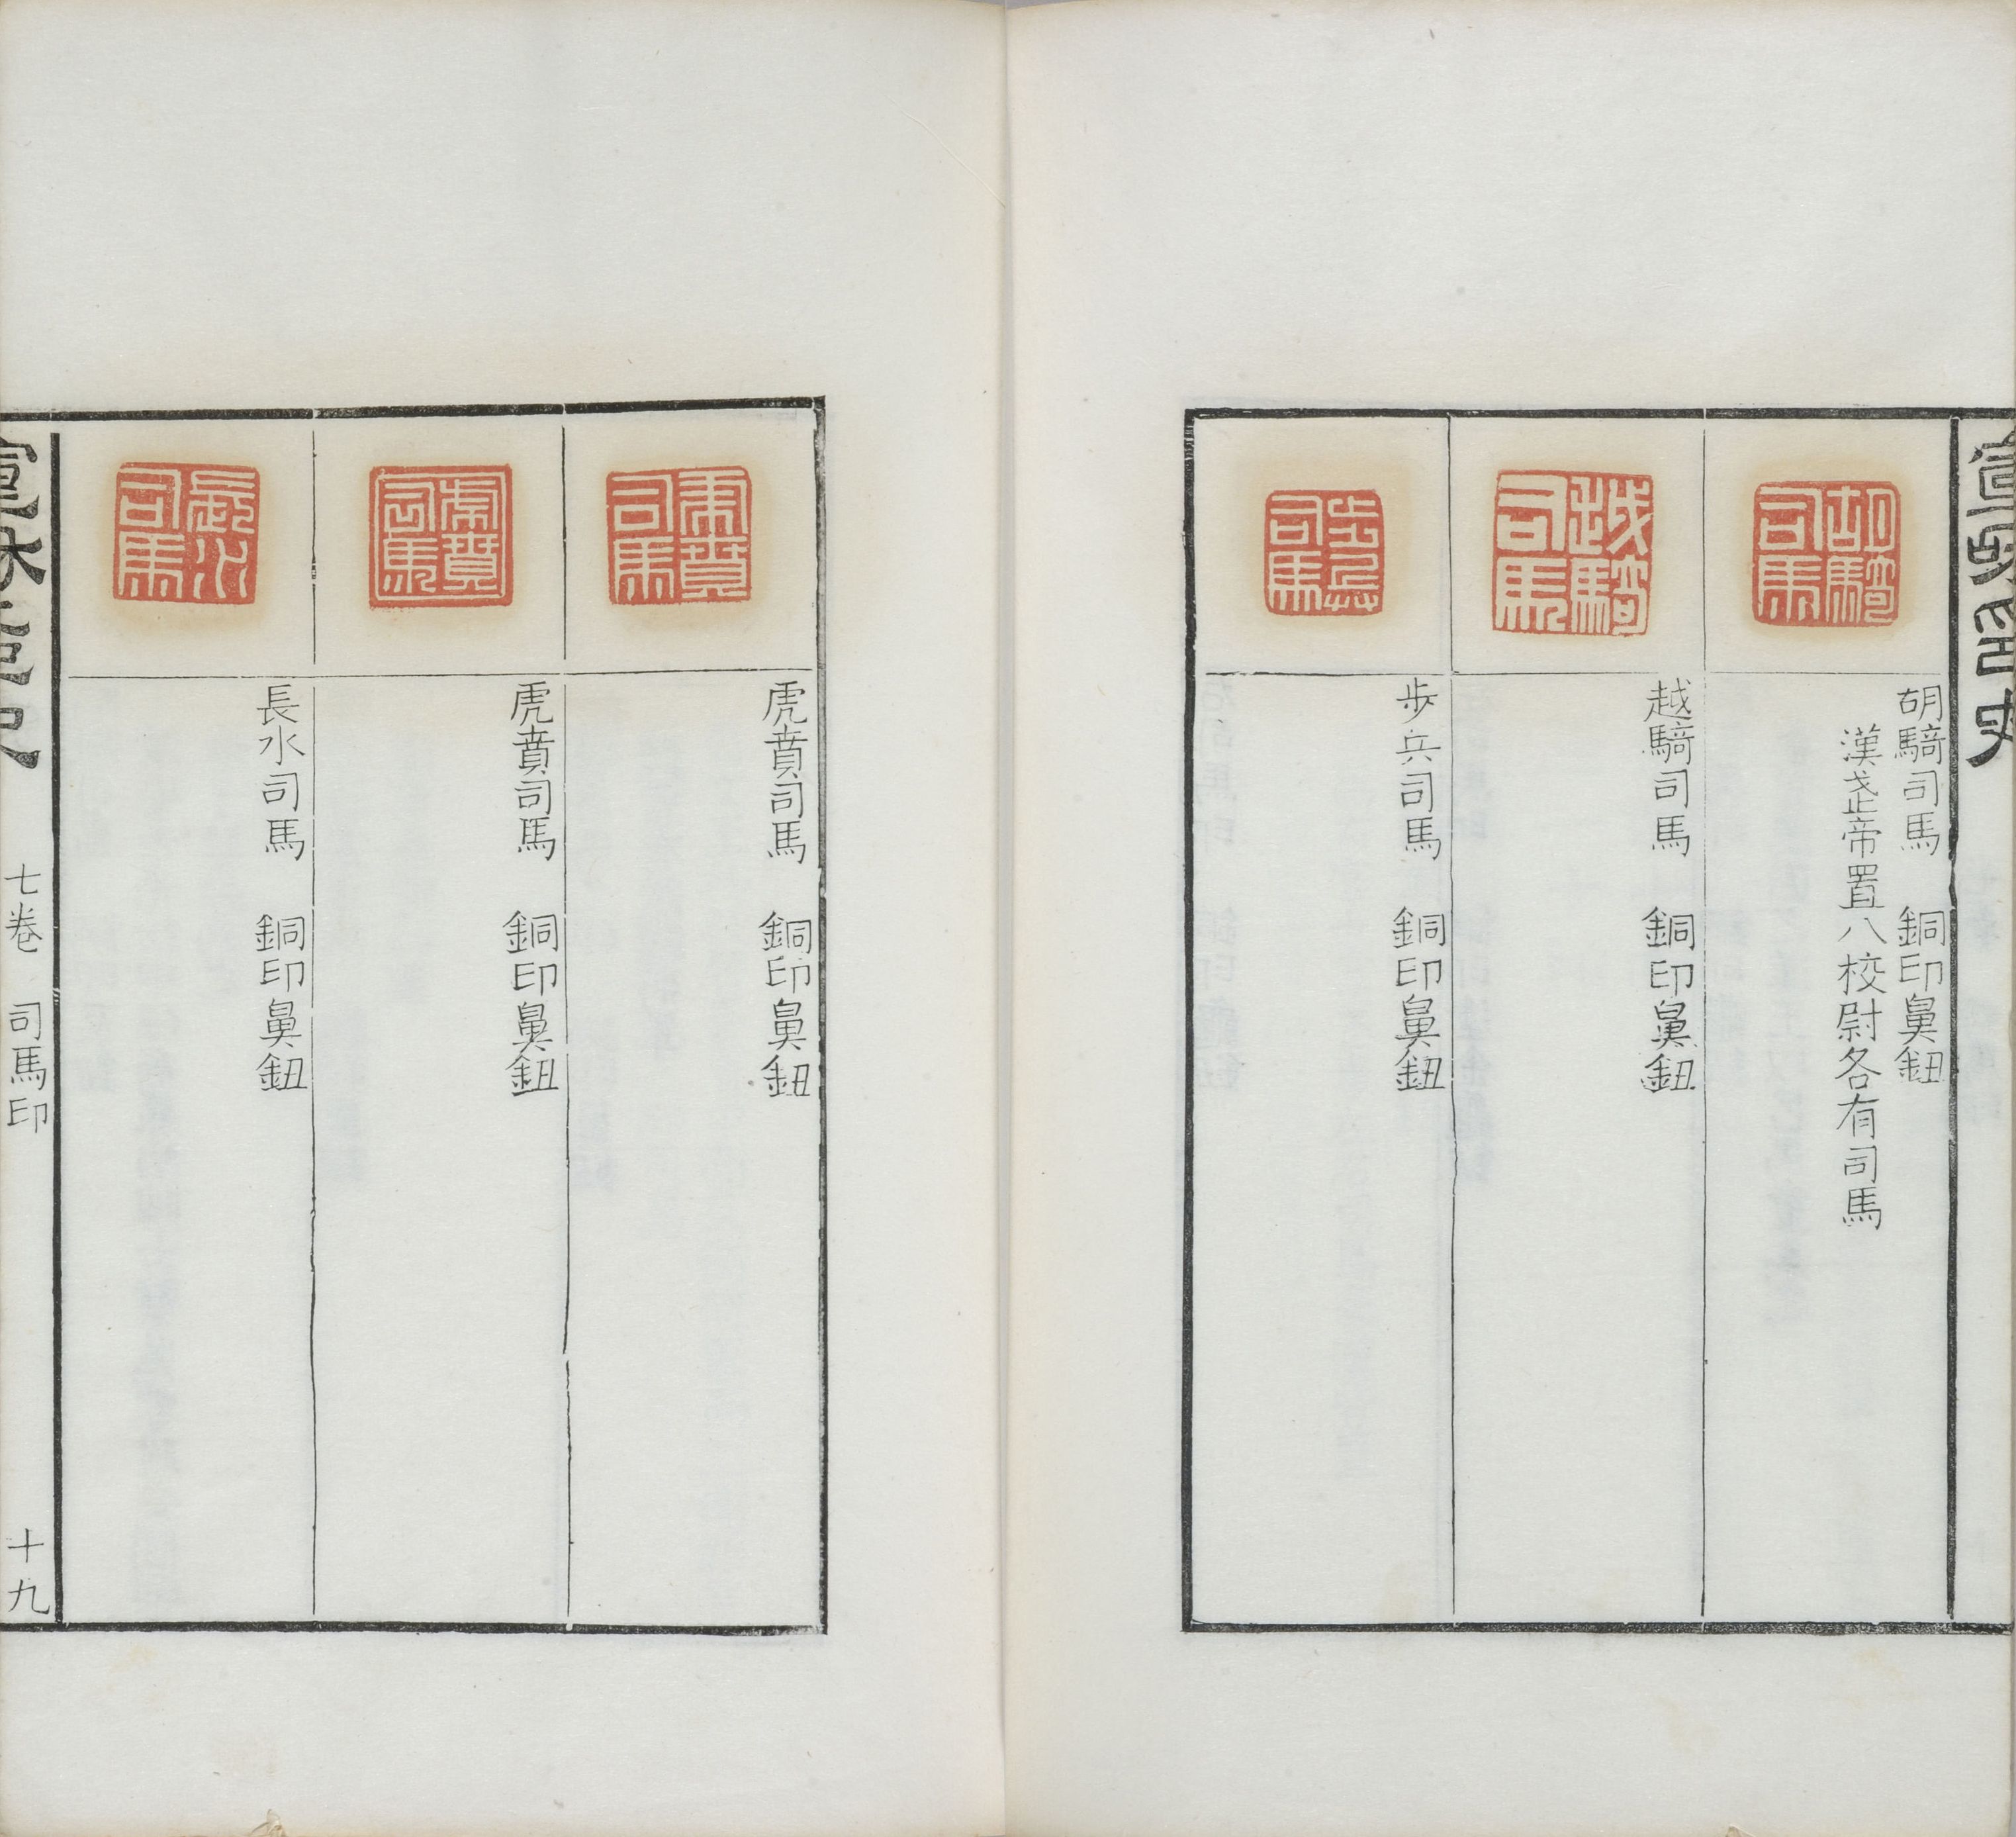 宣和印史
胡騎司馬
胡騎司馬 銅印鼻鈕
漢武帝置八校尉各有司馬
越騎司馬
越騎司馬 銅印鼻鈕
步兵司馬
步兵司馬 銅印鼻鈕
虎賁司馬
虎賁司馬 銅印鼻鈕
虎賁司馬
虎賁司馬 銅印鼻鈕
長水司馬
長水司馬 銅印鼻鈕
宣和印史 七卷 司馬印 十九